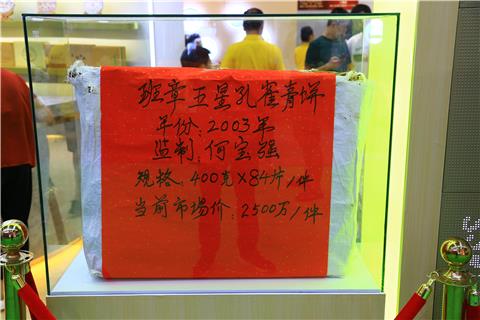 班章五星孔雀青饼
年份:2003年
监制:何宝强
规格:400克×84片/件
当前市场价:2500万/件